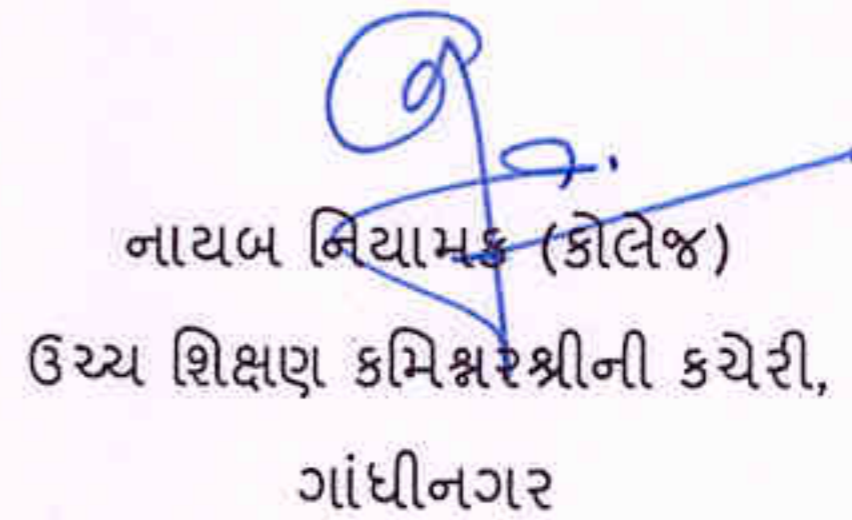 નાયબ નિયામક (કોલેજ)
ઉચ્ચ શિક્ષણ કમિશ્નરશ્રીની કચેરી,
ગાંધીનગર